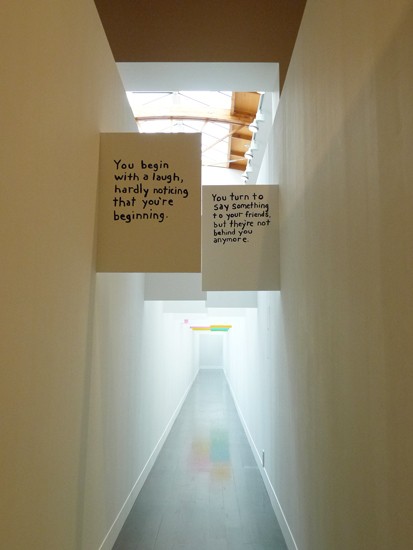 You begin
with a laugh,
hardly noticing
that you're
beginning.
You turn to
say something
to your friends,
but they're not
behind you
anymore.